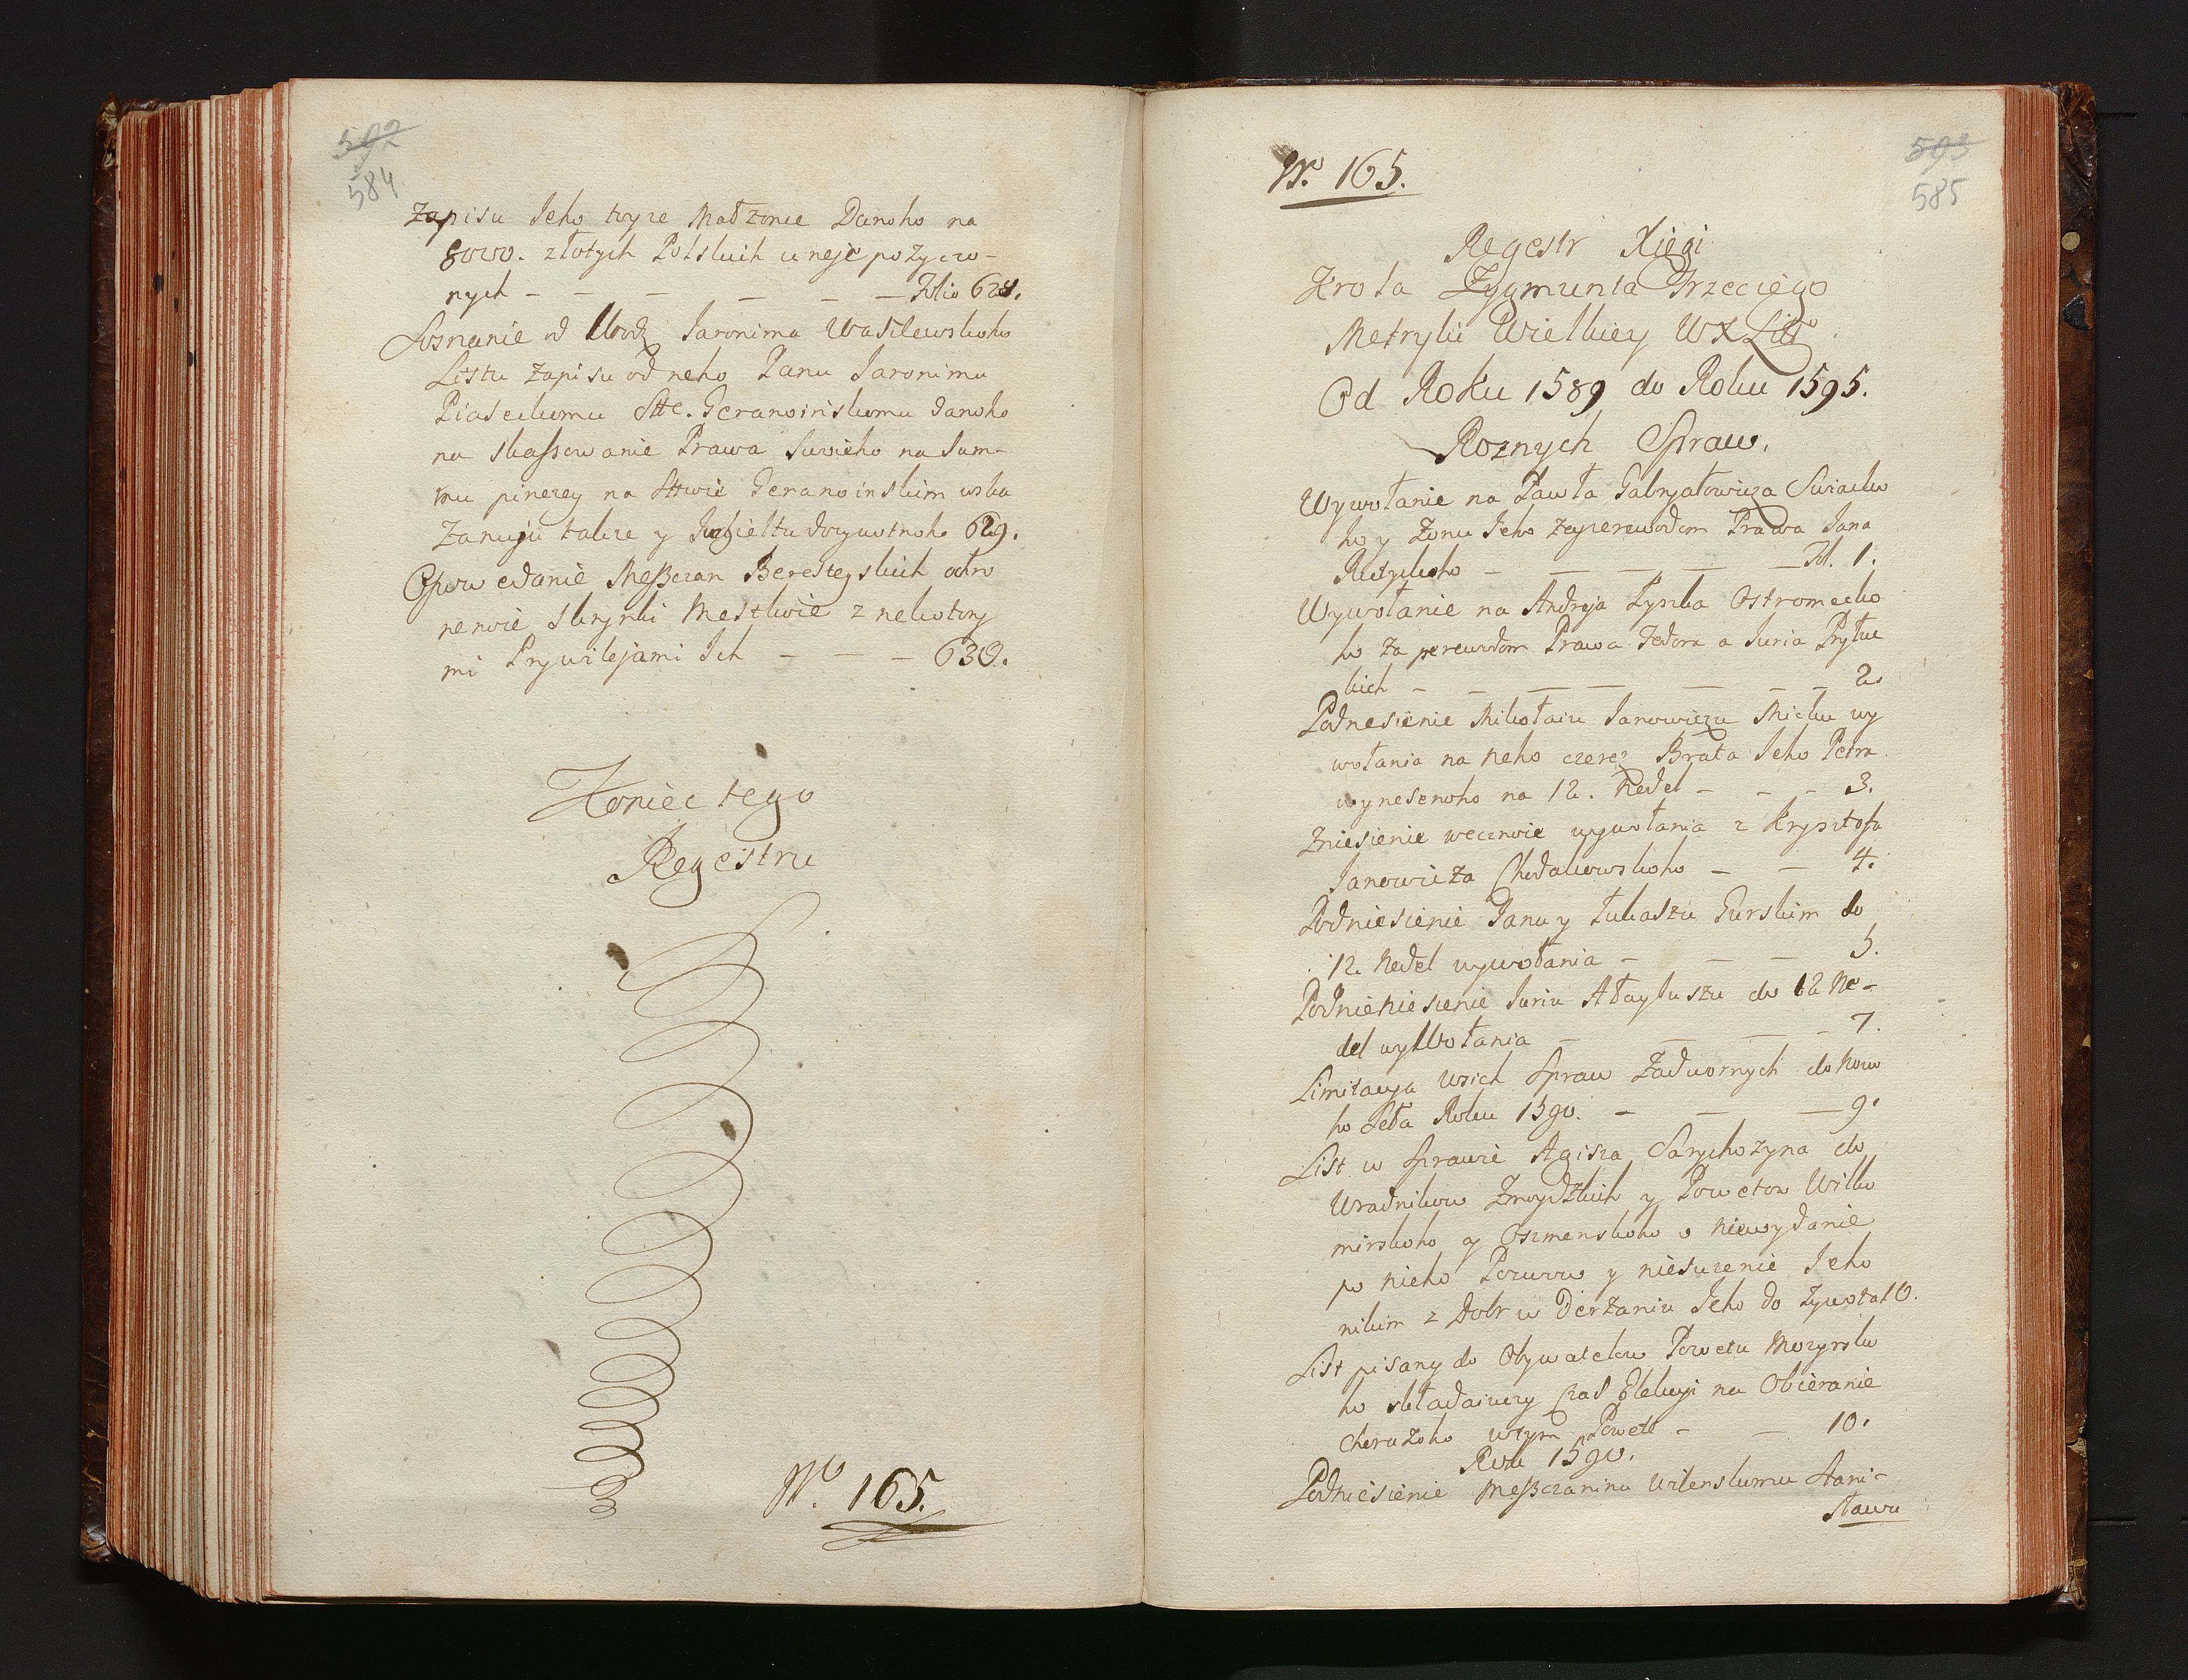 592
584
Zapisu Jeho toyze Małzonce Danoho na
8000. złotych Polskich u neje pozyczo-
nych - - - - - Folio 628.
Soznanie od Urodz. Jaronima Wasilewskoho
Listu Zapisu od neho Panu Jaronimu
Piaseckomu Stte. Geranoinskomu danoho
na skassowanie Prawa Swoieho na Sum-
mu pinezey na Sttwie Geranoinskim wska
zanuju takze y Jurgieltu dozywotnoho 629.
Opowedanie Meszczan Beresteyskich ootwo
renoie skrynki Mestskoie z nekotory
mi Prywilejami Ich - - - 630.
Koniec tego
Regestru
No. 165.
593
585
No. 165.
Regestr Xięgi
Krola Zygmunta Trzeciego
Metryki Wielkiey W X Litt
Od Roku 1589 do Roku 1595.
Roznych Spraw.
Wywołanie na Pawła Gabryałowicza
ho y Zonu Jeho za perewodom Prawa Jana
- - - - Fol. 1.
Wywołanie na Andreja Łyszka Ostromecko
ho za perewodom Prawa Fedora a Juria Prytuc
kich - - - - - - - 2.
Podnesienie Mikołaiu Janowiczu Micku wy
wołania na neho czerez Brata Jeho Petra
wynesenoho na 12. Nedel - - - 3.
Zniesienie wecznoie wywołania z Krysztofa
Janowicza Chodakowskoho - - 4.
Podniesienie Janu y Łukaszu Gurskim do
12. Nedel wywołania - - - 5.
Podnieniesienie Juriu do 12 Ne-
del wywołania - - - - 7.
Limitacyja wsich Spraw Zadwornych do Nowo
ho Leta Roku 1590. - - - 9.
List w Sprawie Agisza Sarychozyna do
Uradnikow Zmoydzkich y Powetow Wilko
mirskoho y Oszmenskoho o niewydanie
po nieho Pozwow y niesuzenie Jeho
nikim z Dobr w Derzaniu Jeho do Zywota 10.
List pisany do Obywatelow Powetu Mozyrsko
ho składaiuczy Czas Elekcyi na Obieranie
Choruzoho w tym Powete - - 10.
Roku 1590.
Podniesienie Meszczaninu Wilenskomu Stani-
sławu